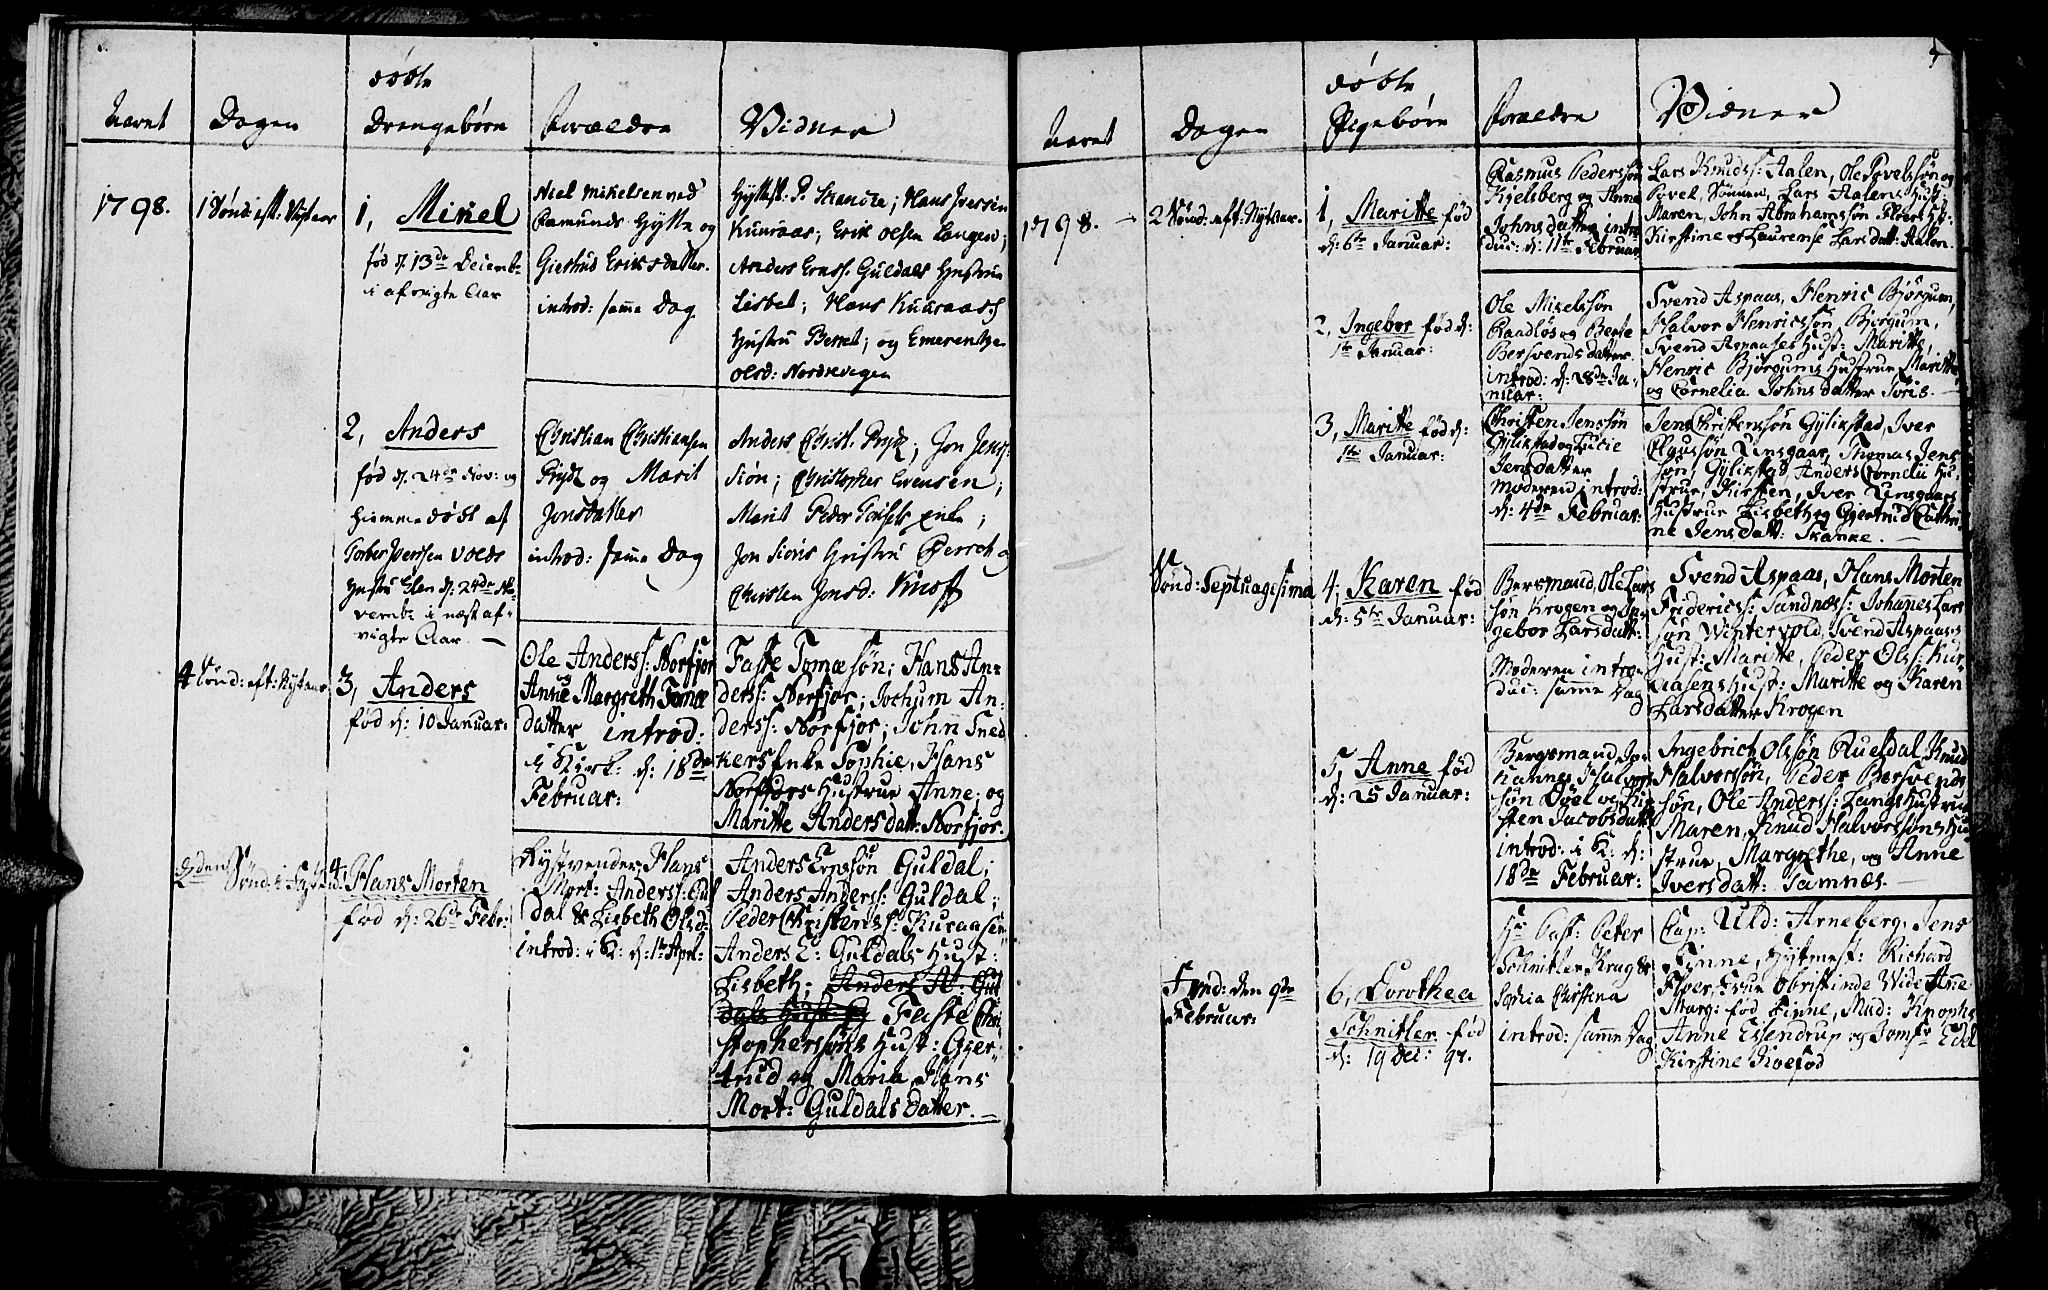 Aaret
Dagen
døbte
Drengebørn
Forældre
Vidner
1798.
1 Sønd: eft: Nytaar
1, Mikel
fød d. 13de Decemb:
i afvigte Aar
Niel Mikelsen ved
Ramunds Hytte og
Giertrud Eriksdatter.
introd: samme Dag
Hyttest. P. Skancke; Hans Iversen
Kuuraas; Erik Olsen Langen;
Anders Ernss. Guldals Hustrue
Lisbet; Hans Kuuraases
Hustru Berret; og Emerentze
Olsd: Nordrevegen
2, Anders
fød d. 24de Nov: og
hiemmedøbt af
Torber Iversen Volds
Hustru Elen d: 24de No-
vemb: i næst af-
vigte Aar. —
Christian Christiansen
Prydz og Marit
Jonsdatter
introd: samme Dag
Anders Christ. Prydz; Jon Jens-
Siøn; Christopher Evensen;
Marit Peder Enke;
Jon Siøns Hustru Berret og
Christen Jonsd: Knoff
4 Sønd: eft: Nytaar
3, Anders
fød d: 10 Januar:
Ole Anderss: Norfjor
og
Anne Margreth Tomæ
datter introd:
i Kirk: d: 18de
Februar:
Faste Tomæsøn; Hans An-
derss: Norfjor; Jochum An-
derss: Norfjor; John Sned
kers Enke Sophie, Hans
Norfjors Hustrue Anne; og
Maritte Andersdatt: Norfjor.
Sønd: i Fast
4 Hans Morten
fød d: 26de Febr:
Hans
Mort: Anderss: Gul
dal & Lisbeth Olsd:
introd: i K: d: 1te Apr:
Anders Ernssøn Guldal;
Anders Anderss: Guldal;
Peder Christens: Kuraasen
Anders E: Guldals Hust:
Lisbeth; Anders A: Gul
dals Hust: og Faste Chri
stopherssøns Hust: Gjer-
trud og Maria Hans
Mort: Guldals Datter. —
Aaret
Dagen
døbte
Pigebørn
Forældre
Vidner
1798. —
2 Sønd: eft: Nytaar.
1, Maritte fød
d: 6te Januar:
Rasmus Pederssøn
Kjelsberg og Anne
Johnsdatter intro
duc: d: 11te Februar
Lars Knudss: Aalen, Ole Povelssøn og
Povel Sønnen, Lars Aalens Hust:
Maren, John Abrahamssøn Floers H:
Kirstine og Laurense Larsdatt: Aalen.
2, Ingebor fød d:
1te Januar:
Ole Mikelssøn
Raadløs og Berte
Bersvendsdatter
introd: d: 28de Ja-
nuar:
Svend Aspaas, Henric Bjørgum,
Halvor Henricssøn Bjørgum,
Svend Aspaases Hust: Maritte,
Henric Bjørgums Hustrue Maritte,
og Cornelia Johnsdatter Toris. —
3, Maritte fød d:
1te Januar:
Christen Jenssøn
Gylikstad og Lucie
Jensdatter
Moderen introd:
d: 4de Februar:
Jens Christenssøn Gylikstad, Iver
Elgussøn Ursgaar, Thomas Jens
søn Gylikstad, Anders Cornelii Hu-
strue, Kirsten, Iver Ursgaars
Hustrue Lisbeth og Gjertrud Cathri
ne Jensdatt: Skanke. —
Sønd: Septuagisima
4, Karen fød
d: 5te Januar:
Bersmand, Ole Lars
søn Krogen og In-
gebor Larsdatt:
Moderen intro
duc: samme Dag
Svend Aspaas, Hans Morten
Fridericss: Sandnæss: Johannes Lars
søn Wintervold, Svend Aspaases
Hust: Maritte, Peder Olss: Kur
aasens Hust: Maritte og Karen
Larsdatter Krogen
5, Anne fød
d: 25 Januar:
Bergsmand Jo-
hannes Halvor
søn Døel og Kir
sten Jacobsdatt:
introd: i K: d:
18de Februar:
Ingebrich Olssøn Ruesdal, Knud
Halvorssøn, Peder Bersvends
søn, Ole Anderss: Langs Hustrue
Maren, Knud Halvorssøns Hu-
strue, Margrethe, og Anne
Iversdatt: Samnæs. —
den 9de
Februar:
6, Dorothea
Schnitler fød
d: 19 Dec: 97.
Hr Past: Peter
Schnitler Krag &
Sophia Christina
introd: samme Dag
Cap: Uld: Arneberg, Jens
Finne, Hytmest: Richard
Floer, Frue Obristinde Wide Anne
Marg: fød Finne, Mad: Knophs
Anne Elsendrup og Jomfr Edel
Kirstine